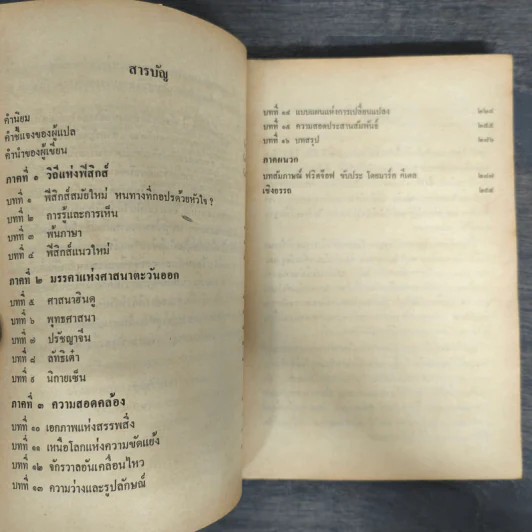 สารบัญ
คำนิยม
คำชี้แจงของผู้แปล
คำนำของผู้เขียน
ภาคที่ ๑ วิถีแห่งฟิสิกส์
บทที่ ๑ ฟิสิกส์สมัยใหม่ หนทางที่กอปรด้วยหัวใจ ?
บทที่ ๒ การรู้และการเห็น
บทที่ ๓ พ้นภาษา
บทที่ ๔ ฟิสิกส์แนวใหม่
ภาคที่ ๒ มรรคาแห่งศาสนาตะวันออก
บทที่ ๕ ศาสนาฮินดู
บทที่ ๖ พุทธศาสนา
บทที่ ๗ ปรัชญาจีน
บทที่ ๘ ลัทธิเต๋า
บทที่ ๙ นิกายเซ็น
ภาคที่ ๓ ความสอดคล้อง
บทที่ ๑๐ เอกภาพแห่งสรรพสิ่ง
บทที่ ๑๑ เหนือโลกแห่งความขัดแย้ง
บทที่ ๑๒ จักรวาลอันเคลื่อนไหว
บทที่ ๑๓ ความว่างและรูปลักษณ์
บทที่ ๑๔ แบบแผนแห่งการเปลี่ยนแปลง
บทที่ ๑๕ ความสอดประสานสัมพันธ์
บทที่ ๑๖ บทสรุป
ภาคผนวก
บทสัมภาษณ์ ฟริตจ๊อฟ
เชิงอรรถ